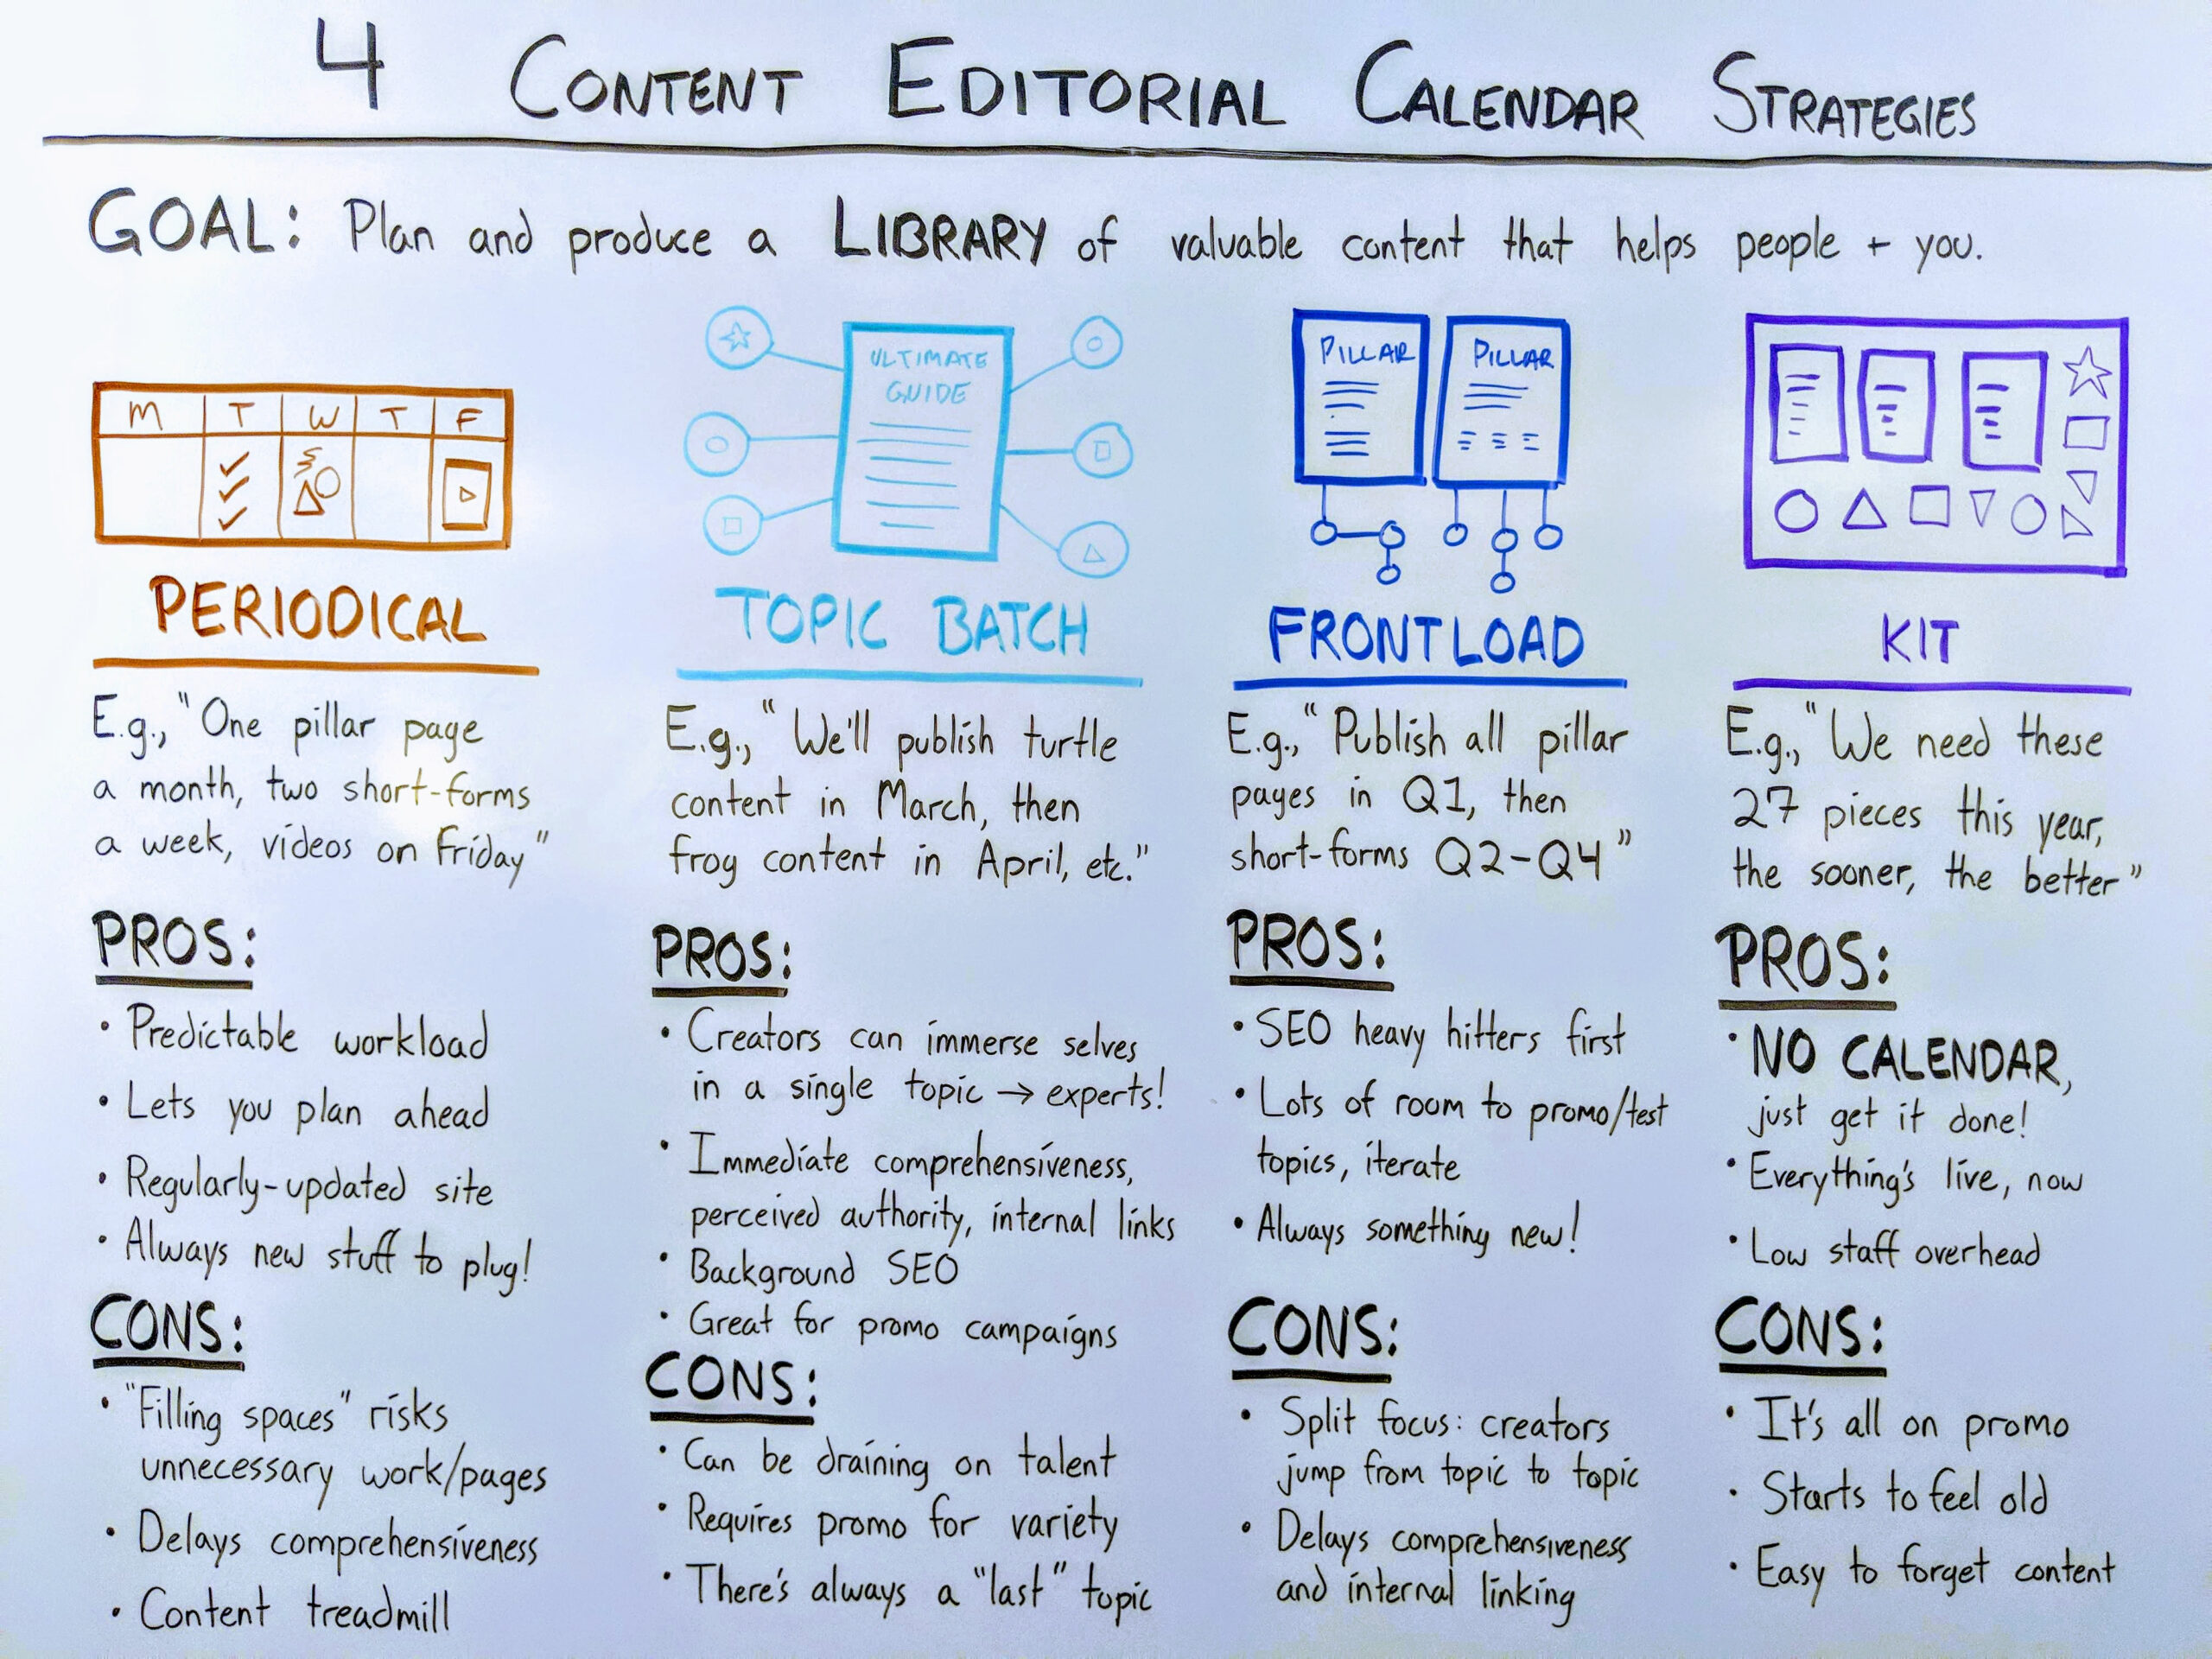 4 CONTENT EDITORIAL CALENDAR STRATEGIES
GOAL: Plan and produce a LIBRARY of valuable content that helps people + you.
M T W T F
PERIODICAL
E.g., "One pillar page
a month, two short-forms
a week, videos on Friday"
PROS:
• Predictable workload
• Lets you plan ahead
• Regularly-updated site
• Always new stuff to plug!
CONS:
• "Filling spaces" risks
unnecessary work/pages
• Delays comprehensiveness
• Content treadmill
ULTIMATE
GUIDE
TOPIC BATCH
E.g., "We'll publish turtle
content in March, then
frog content in April, etc."
PROS:
• Creators can immerse selves
in a single topic → experts!
• Immediate comprehensiveness,
perceived authority, internal links
• Background SEO
• Great for promo campaigns
CONS:
• Can be draining on talent
• Requires promo for variety
• There's always a "last" topic
PILLAR
PILLAR
FRONTLOAD
E.g., "Publish all pillar
pages in Q1, then
short-forms Q2-Q4"
PROS:
• SEO heavy hitters first
• Lots of room to promo/test
topics, iterate
• Always something new!
CONS:
• Split focus: creators
jump from topic to topic
• Delays comprehensiveness
and internal linking
KIT
E.g., "We need these
27 pieces this year,
the sooner, the better"
PROS:
• NO CALENDAR,
just get it done!
• Everything's live, now
• Low staff overhead
CONS:
• It's all on promo
• Starts to feel old
• Easy to forget content